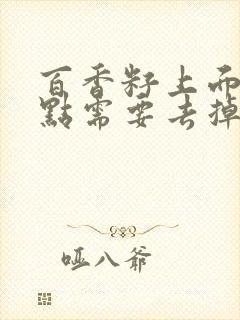 百香籽上而
點需要去掉
哑八爺